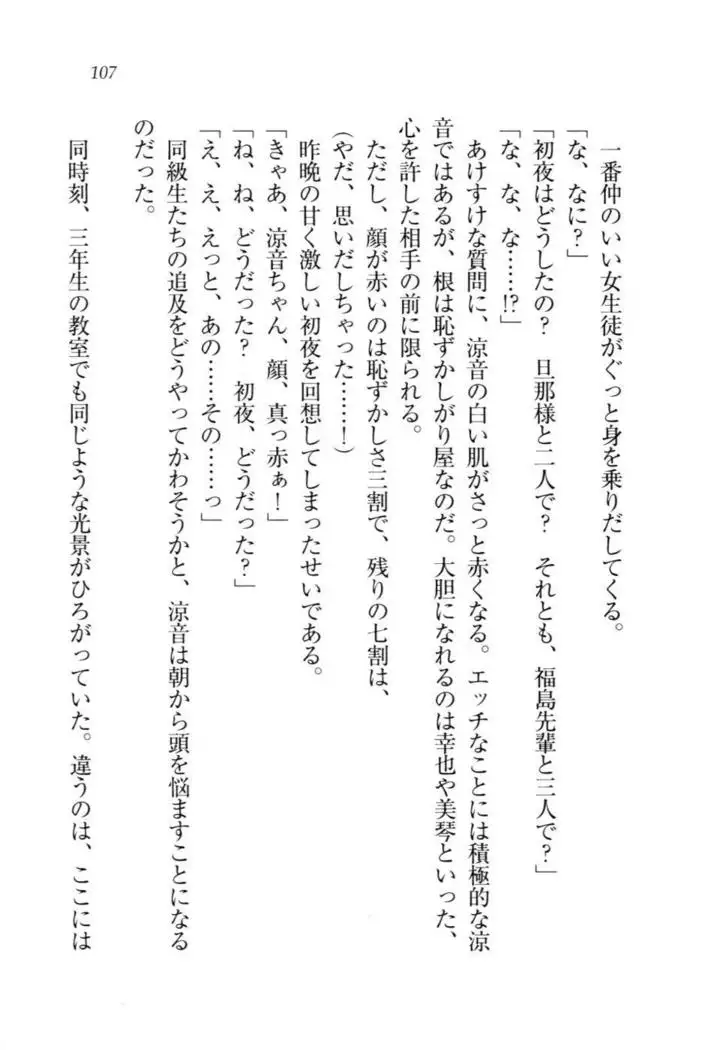 107
一番仲のいい女生徒がぐっと身を乗りだしてくる。
「な、なに？」
「初夜はどうしたの？　旦那様と二人で？　それとも、福島先輩と三人で？」
「な、な、な……!?」
あけすけな質問に、涼音の白い肌がさっと赤くなる。エッチなことには積極的な涼
音ではあるが、根は恥ずかしがり屋なのだ。大胆になれるのは幸也や美琴といった、
心を許した相手の前に限られる。
ただし、顔が赤いのは恥ずかしさ三割で、残りの七割は、
（やだ、思いだしちゃった……！）
昨晩の甘く激しい初夜を回想してしまったせいである。
「きゃあ、涼音ちゃん、顔、真っ赤ぁ！」
「ね、ね、どうだった？　初夜、どうだった？」
「え、え、えっと、あの……その……っ」
同級生たちの追及をどうやってかわそうかと、涼音は朝から頭を悩ますことになる
のだった。
同時刻、三年生の教室でも同じような光景がひろがっていた。違うのは、ここには